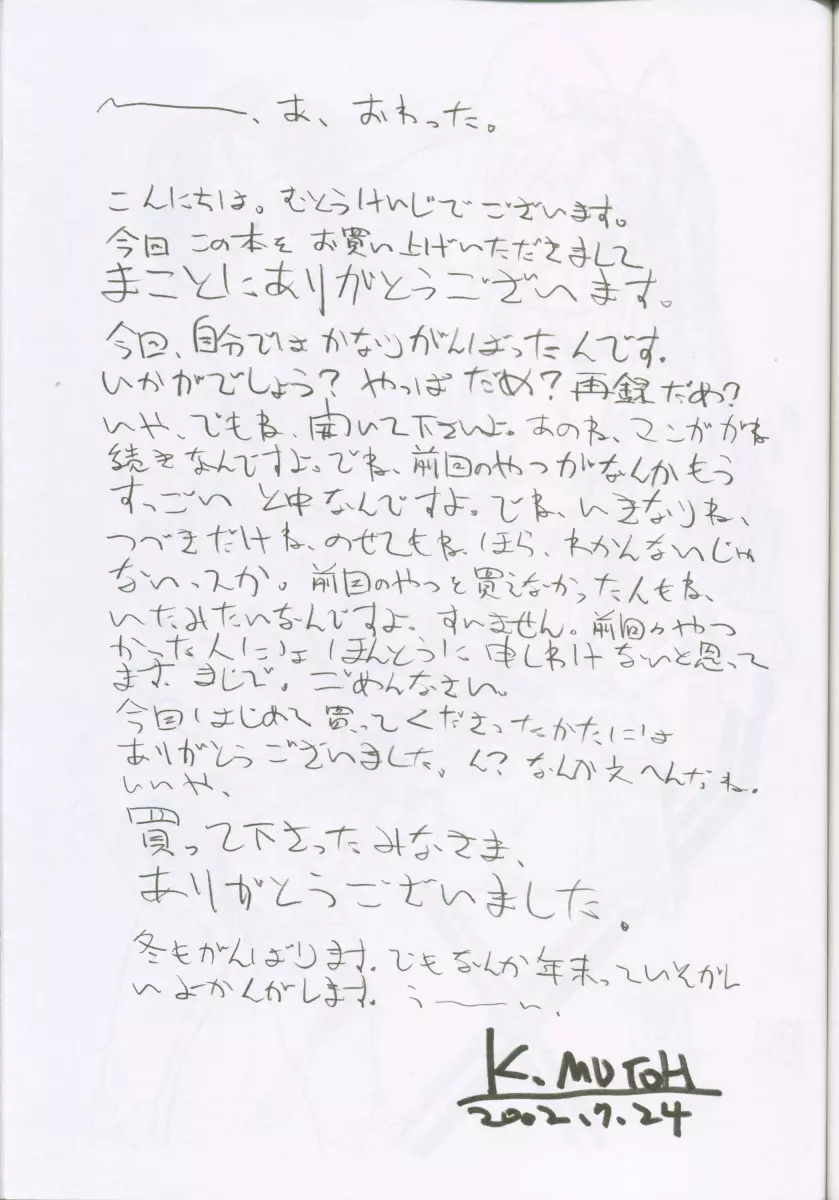 〜――、あ、おわった。
こんにちは。むとうけいじでございます。
今回この本をお買い上げいただきまして
まことにありがとうございます。
今回、自分ではかなりがんばったんです。
いかがでしょう？やっぱだめ？再録だめ？
いや、でもね、聞いて下さいよ。あのね、マンガがね
続きなんですよ。でね、前回のやつがなんかもう
すっごい と中なんですよ。でね、いきなりね、
つづきだけね、のせてもね、ほら、わかんないじゃ
ないっスか。前回のやつと買えなかった人もね、
いたみたいなんですよ、すいません。前回のやつ
かった人には ほんとうに申しわけないと思って
ます。まじで。ごめんなさい。
今回はじめて買ってくださったかたには
ありがとうございました。ん？なんか文へんだね。
いいや、
買って下さったみなさま、
ありがとうございました。
冬もがんばります。でもなんか年末っていそがし
いよかんがします。うーーい、
K. MUTOH
2002.7.24